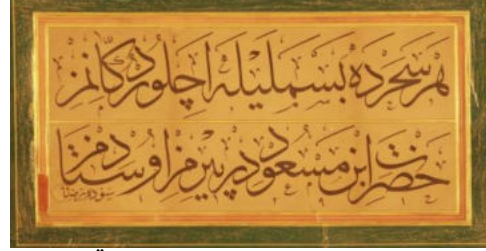 هر سحرده بسمليله اچلور دكانمز
حضرت ابن مسعوددر پيرمز اوستادمز